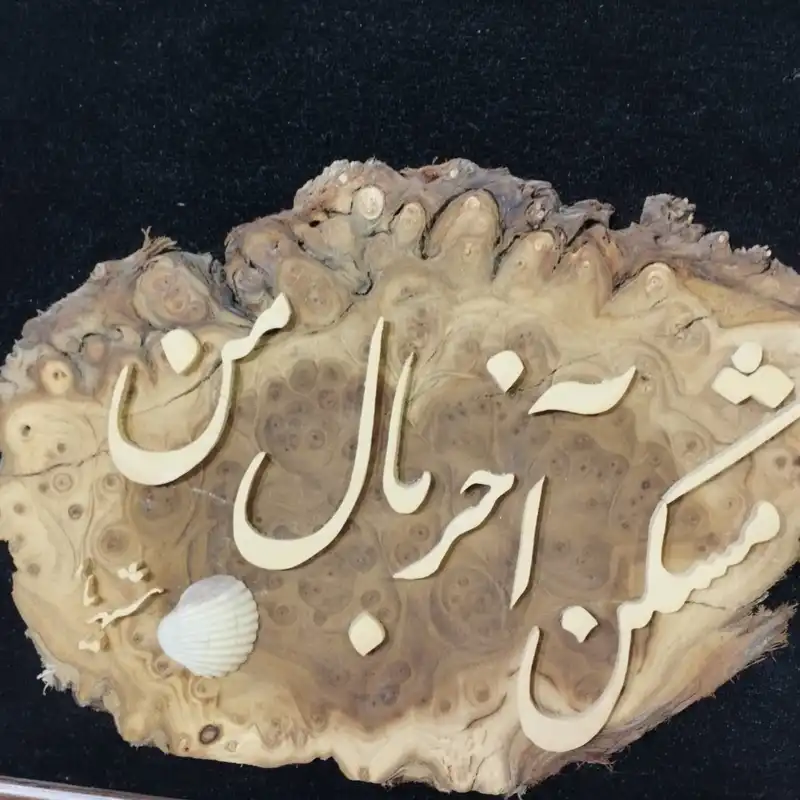 مشکن آخر بال من